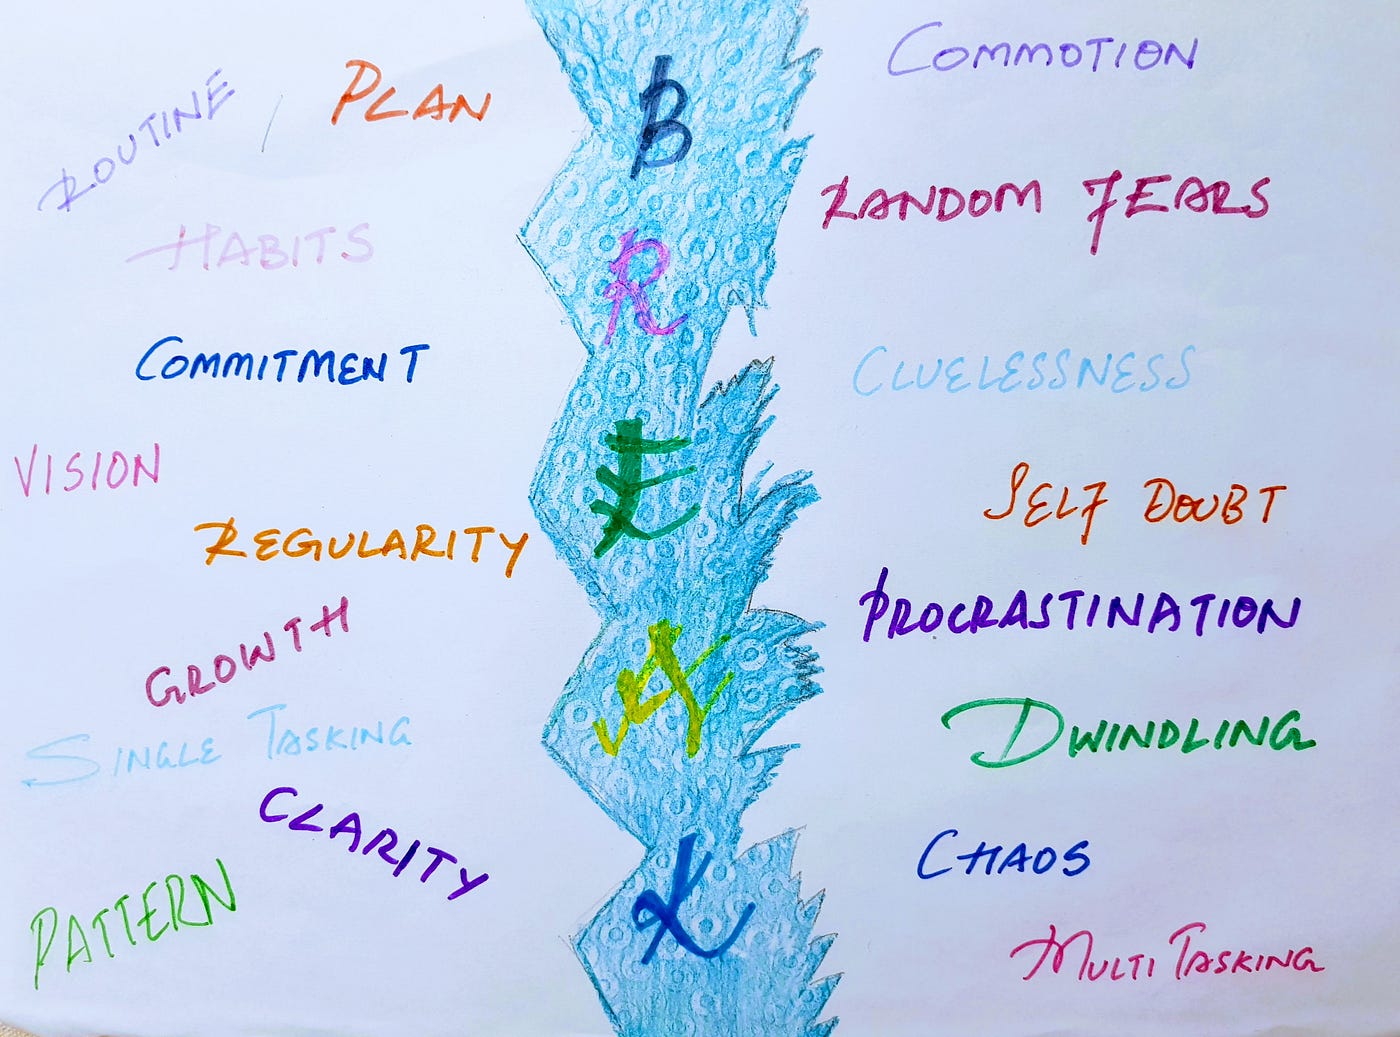 ROUTINE , PLAN
HABITS
COMMITMENT
VISION
REGULARITY
GROWTH
SINGLE TASKING
CLARITY
PATTERN
B
R
E
A
K
COMMOTION
RANDOM FEARS
CLUELESSNESS
SELF DOUBT
PROCRASTINATION
DWINDLING
CHAOS
MULTI TASKING